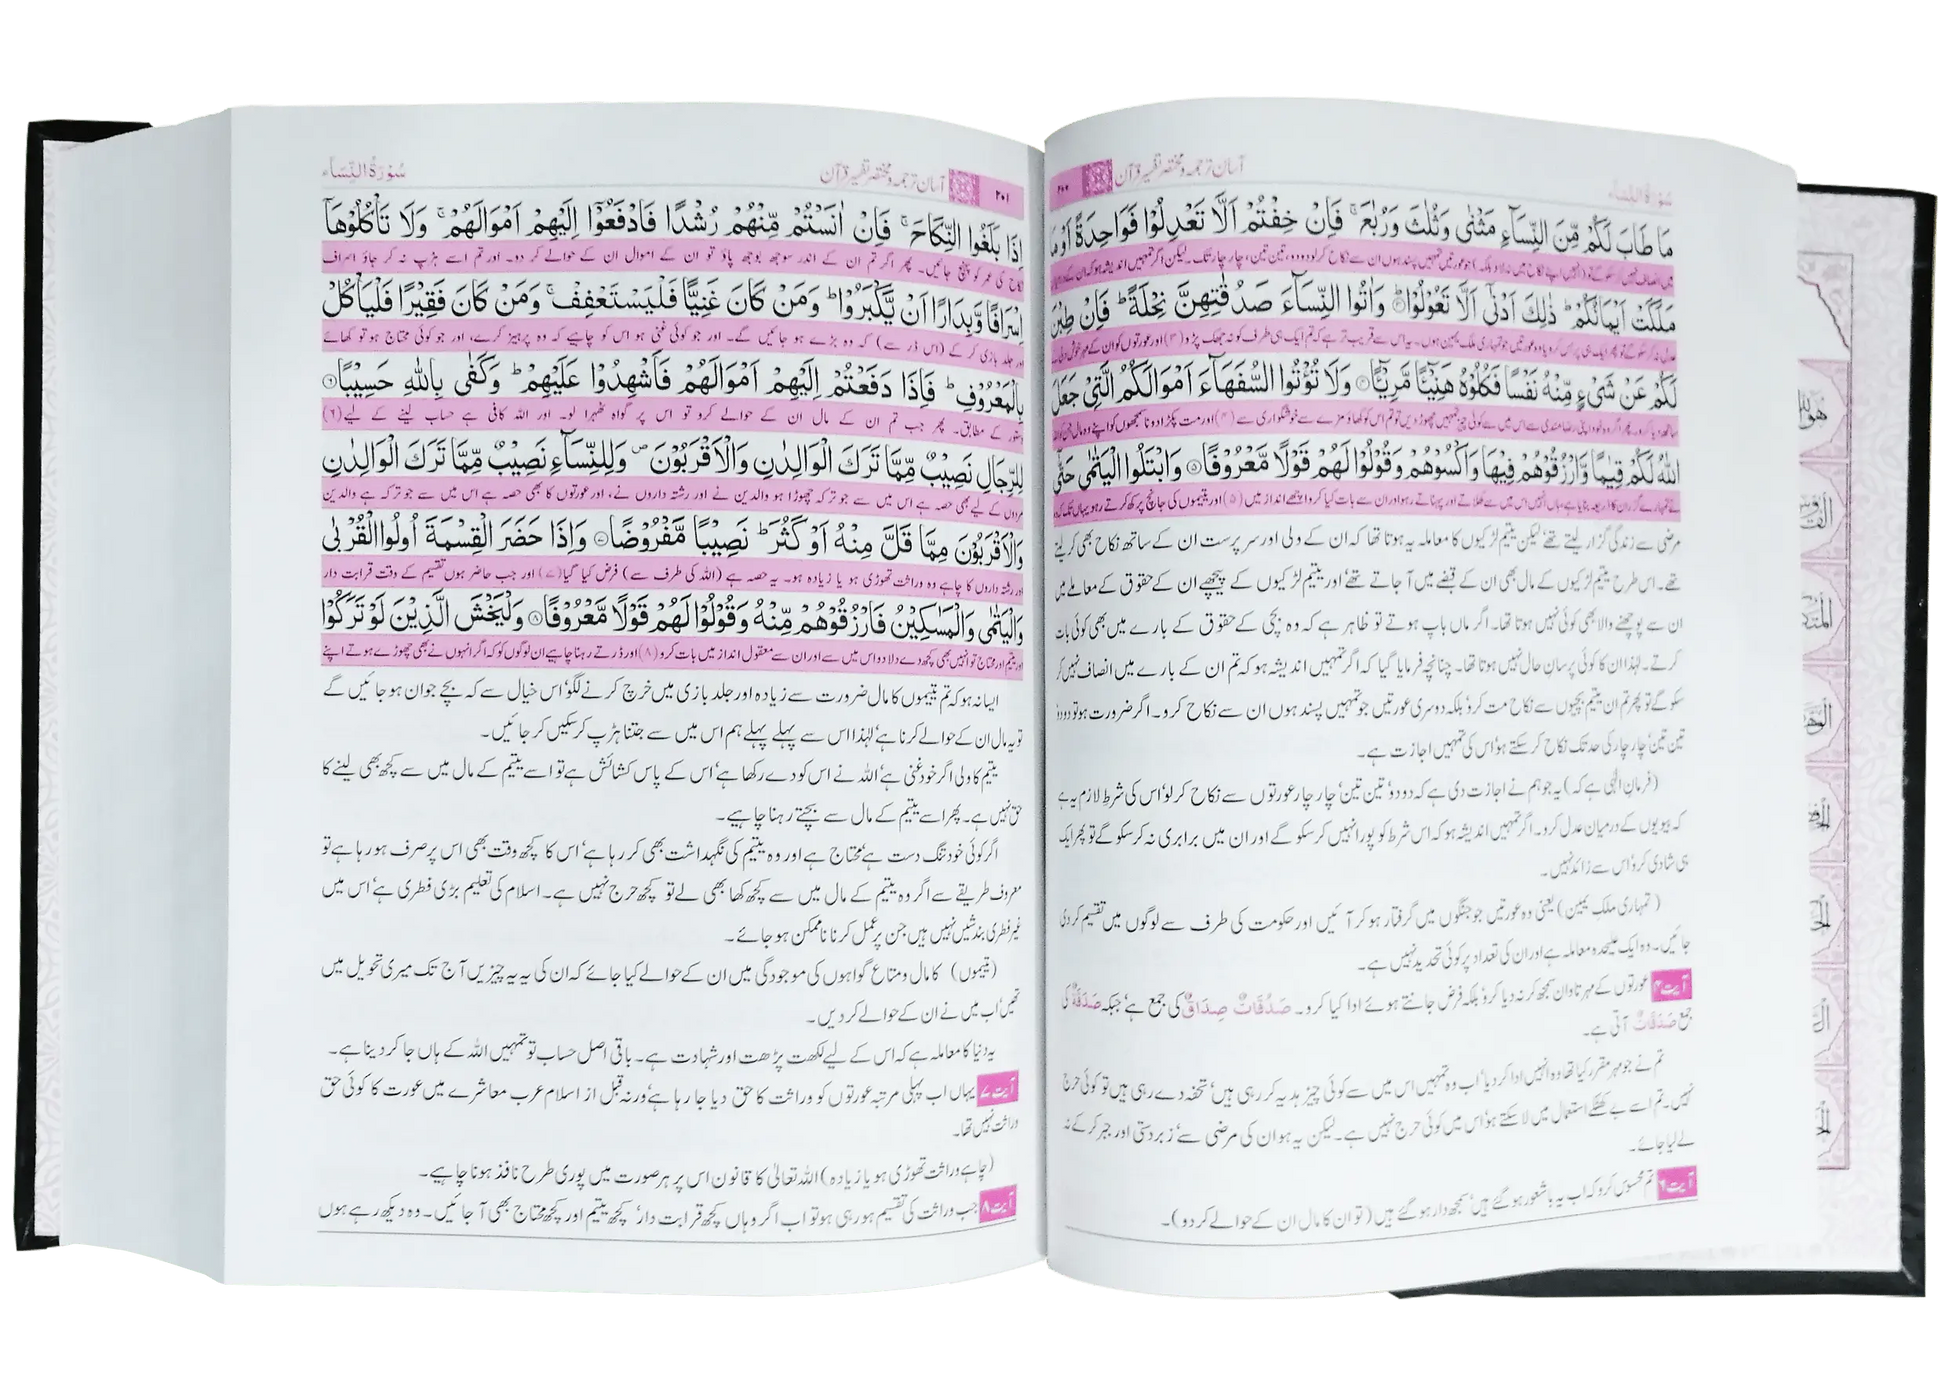 ۲۰۰ آسان ترجمہ و مختصر تفسیر قرآن سُوْرَةُ النِّسَآء
مَا طَابَ لَكُمْ مِّنَ النِّسَآءِ مَثْنٰى وَثُلٰثَ وَرُبٰعَ ۚ فَاِنْ خِفْتُمْ اَلَّا تَعْدِلُوْا فَوَاحِدَةً اَوْ مَا
میں انصاف نہیں کر سکو گے تو (انہیں اپنے نکاح میں نہ لاؤ بلکہ) جو عورتیں تمہیں پسند ہوں ان سے نکاح کر لو دو دو، تین تین، چار چار تک۔ لیکن اگر تمہیں اندیشہ ہو کہ ان کے درمیان
مَلَكَتْ اَيْمَانُكُمْ ؕ ذٰلِكَ اَدْنٰۤى اَلَّا تَعُوْلُوْا ؕ۳ وَاٰتُوا النِّسَآءَ صَدُقٰتِهِنَّ نِحْلَةً ؕ فَاِنْ طِبْنَ
عدل نہ کر سکو گے تو پھر ایک ہی پر بس کرو یا وہ عورتیں جو تمہاری ملک یمین ہوں۔ یہ اس سے قریب تر ہے کہ تم ایک ہی طرف کو نہ جھک پڑو (۳) اور عورتوں کو ان کے مہر خوش دلی سے
لَكُمْ عَنْ شَيْءٍ مِّنْهُ نَفْسًا فَكُلُوْهُ هَنِيْٓئًا مَّرِيْٓئًا ۴ وَلَا تُؤْتُوا السُّفَهَآءَ اَمْوَالَكُمُ الَّتِيْ جَعَلَ
ساتھ دیا کرو۔ پھر اگر وہ خود اپنی رضامندی سے اس میں سے کوئی چیز تمہیں چھوڑ دیں تو تم اس کو کھاؤ مزے سے خوشگواری سے (۴) اور مت پکڑا دو ناسمجھوں کو اپنے وہ مال جن کو اللہ
اللّٰهُ لَكُمْ قِيٰمًا وَّارْزُقُوْهُمْ فِيْهَا وَاكْسُوْهُمْ وَقُوْلُوْا لَهُمْ قَوْلًا مَّعْرُوْفًا ۵ وَابْتَلُوا الْيَتٰمٰى حَتّٰۤى
نے تمہارے گزران کا ذریعہ بنایا ہے، ہاں انہیں اس میں سے کھلاتے اور پہناتے رہو اور ان سے بات کیا کرو اچھے انداز میں (۵) اور یتیموں کی جانچ پرکھ کرتے رہو یہاں تک کہ وہ
مرضی سے زندگی گزار لیتے تھے لیکن یتیم لڑکیوں کا معاملہ یہ ہوتا تھا کہ ان کے ولی اور سرپرست ان کے ساتھ نکاح بھی کر لیتے
تھے۔ اس طرح یتیم لڑکیوں کے مال بھی ان کے قبضے میں آ جاتے تھے اور یتیم لڑکیوں کے پیچھے ان کے حقوق کے معاملے میں
ان سے پوچھنے والا بھی کوئی نہیں ہوتا تھا۔ اگر ماں باپ ہوتے تو ظاہر ہے کہ وہ بچی کے حقوق کے بارے میں بھی کوئی بات
کرتے۔ لہٰذا ان کا کوئی پرسان حال نہیں ہوتا تھا۔ چنانچہ فرمایا گیا کہ اگر تمہیں اندیشہ ہو کہ تم ان کے بارے میں انصاف نہیں کر
سکو گے تو پھر تم ان یتیم بچیوں سے نکاح مت کرو بلکہ دوسری عورتیں جو تمہیں پسند ہوں ان سے نکاح کرو۔ اگر ضرورت ہو تو دو دو
تین تین چار چار کی حد تک نکاح کر سکتے ہو اس کی تمہیں اجازت ہے۔
(فرمانِ الٰہی ہے کہ) یہ جو ہم نے اجازت دی ہے کہ دو دو تین تین چار چار عورتوں سے نکاح کر لو اس کی شرط لازم یہ ہے
کہ بیویوں کے درمیان عدل کرو۔ اگر تمہیں اندیشہ ہو کہ اس شرط کو پورا نہیں کر سکو گے اور ان میں برابری نہ کر سکو گے تو پھر ایک
ہی شادی کرو اس سے زائد نہیں۔
(تمہاری ملک یمین) یعنی وہ عورتیں جو جنگوں میں گرفتار ہو کر آئیں اور حکومت کی طرف سے لوگوں میں تقسیم کر دی
جائیں۔ وہ ایک علیحدہ معاملہ ہے اور ان کی تعداد پر کوئی تحدید نہیں ہے۔
آیت ۴ عورتوں کے مہر تاوان سمجھ کر نہ دیا کرو بلکہ فرض جانتے ہوئے ادا کیا کرو۔ صَدُقَاتٌ صِدَاقٌ کی جمع ہے جبکہ صَدَقَةٌ کی
جمع صَدَقَاتٌ آتی ہے۔
تم نے جو مہر مقرر کیا تھا وہ انہیں ادا کر دیا اب وہ تمہیں اس میں سے کوئی چیز ہدیہ کر رہی ہیں تحفہ دے رہی ہیں تو کوئی حرج
نہیں۔ تم اسے بے کھٹکے استعمال میں لا سکتے ہو اس میں کوئی حرج نہیں ہے۔ لیکن یہ ہو ان کی مرضی سے زبردستی اور جبر کر کے نہ
لے لیا جائے۔
آیت ۶ تم محسوس کرو کہ اب یہ باشعور ہو گئے ہیں سمجھ دار ہو گئے ہیں (تو ان کا مال ان کے حوالے کر دو)۔
۲۰۱ آسان ترجمہ و مختصر تفسیر قرآن سُوْرَةُ النِّسَآء
اِذَا بَلَغُوا النِّكَاحَ ۚ فَاِنْ اٰنَسْتُمْ مِّنْهُمْ رُشْدًا فَادْفَعُوْۤا اِلَيْهِمْ اَمْوَالَهُمْ ۚ وَلَا تَاْكُلُوْهَاۤ
نکاح کی عمر کو پہنچ جائیں۔ پھر اگر تم ان کے اندر سوجھ بوجھ پاؤ تو ان کے اموال ان کے حوالے کر دو۔ اور تم اسے ہڑپ نہ کر جاؤ اسراف
اِسْرَافًا وَّبِدَارًا اَنْ يَّكْبَرُوْا ؕ وَمَنْ كَانَ غَنِيًّا فَلْيَسْتَعْفِفْ ۚ وَمَنْ كَانَ فَقِيْرًا فَلْيَاْكُلْ
اور جلد بازی کر کے (اس ڈر سے) کہ وہ بڑے ہو جائیں گے۔ اور جو کوئی غنی ہو اس کو چاہیے کہ وہ پرہیز کرے، اور جو کوئی محتاج ہو تو کھائے
بِالْمَعْرُوْفِ ؕ فَاِذَا دَفَعْتُمْ اِلَيْهِمْ اَمْوَالَهُمْ فَاَشْهِدُوْا عَلَيْهِمْ ؕ وَكَفٰى بِاللّٰهِ حَسِيْبًا ۶
دستور کے مطابق۔ پھر جب تم ان کے مال ان کے حوالے کرو تو اس پر گواہ ٹھہرا لو۔ اور اللہ کافی ہے حساب لینے کے لیے (۶)
لِلرِّجَالِ نَصِيْبٌ مِّمَّا تَرَكَ الْوَالِدٰنِ وَالْاَقْرَبُوْنَ ۪ وَلِلنِّسَآءِ نَصِيْبٌ مِّمَّا تَرَكَ الْوَالِدٰنِ
مردوں کے لیے بھی حصہ ہے اس میں سے جو ترکہ چھوڑا ہو والدین نے اور رشتہ داروں نے، اور عورتوں کا بھی حصہ ہے اس میں سے جو ترکہ ہے والدین
وَالْاَقْرَبُوْنَ مِمَّا قَلَّ مِنْهُ اَوْ كَثُرَ ؕ نَصِيْبًا مَّفْرُوْضًا ۷ وَاِذَا حَضَرَ الْقِسْمَةَ اُولُوا الْقُرْبٰى
اور رشتہ داروں کا چاہے وہ وراثت تھوڑی ہو یا زیادہ ہو۔ یہ حصہ ہے (اللہ کی طرف سے) فرض کیا گیا (۷) اور جب حاضر ہوں تقسیم کے وقت قرابت دار
وَالْيَتٰمٰى وَالْمَسٰكِيْنُ فَارْزُقُوْهُمْ مِّنْهُ وَقُوْلُوْا لَهُمْ قَوْلًا مَّعْرُوْفًا ۸ وَلْيَخْشَ الَّذِيْنَ لَوْ تَرَكُوْا
اور یتیم اور محتاج تو انہیں بھی کچھ دے دلا دو اس میں سے اور ان سے معقول انداز میں بات کرو (۸) اور ڈرتے رہنا چاہیے ان لوگوں کو کہ اگر انہوں نے بھی چھوڑے ہوتے اپنے
ایسا نہ ہو کہ تم یتیموں کا مال ضرورت سے زیادہ اور جلد بازی میں خرچ کرنے لگو اس خیال سے کہ بچے جوان ہو جائیں گے
تو یہ مال ان کے حوالے کرنا ہے لہٰذا اس سے پہلے پہلے ہم اس میں سے جتنا ہڑپ کر سکیں کر جائیں۔
یتیم کا ولی اگر خود غنی ہے اللہ نے اس کو دے رکھا ہے اس کے پاس کشائش ہے تو اسے یتیم کے مال میں سے کچھ بھی لینے کا
حق نہیں ہے۔ پھر اسے یتیم کے مال سے بچتے رہنا چاہیے۔
اگر کوئی خود تنگ دست ہے محتاج ہے اور وہ یتیم کی نگہداشت بھی کر رہا ہے اس کا کچھ وقت بھی اس پر صرف ہو رہا ہے تو
معروف طریقے سے اگر وہ یتیم کے مال میں سے کچھ کھا بھی لے تو کچھ حرج نہیں ہے۔ اسلام کی تعلیم بڑی فطری ہے اس میں
غیر فطری بندشیں نہیں ہیں جن پر عمل کرنا ناممکن ہو جائے۔
(یتیموں) کا مال و متاع گواہوں کی موجودگی میں ان کے حوالے کیا جائے کہ ان کی یہ یہ چیزیں آج تک میری تحویل میں
تھیں اب میں نے ان کے حوالے کر دیں۔
یہ دنیا کا معاملہ ہے کہ اس کے لیے لکھت پڑھت اور شہادت ہے۔ باقی اصل حساب تو تمہیں اللہ کے ہاں جا کر دینا ہے۔
آیت ۷ یہاں اب پہلی مرتبہ عورتوں کو وراثت کا حق دیا جا رہا ہے ورنہ قبل از اسلام عرب معاشرے میں عورت کا کوئی حق
وراثت نہیں تھا۔
(چاہے وراثت تھوڑی ہو یا زیادہ) اللہ تعالیٰ کا قانون اس پر ہر صورت میں پوری طرح نافذ ہونا چاہیے۔
آیت ۸ جب وراثت کی تقسیم ہو رہی ہو تو اب اگر وہاں کچھ قرابت دار کچھ یتیم اور کچھ محتاج بھی آ جائیں۔ وہ دیکھ رہے ہوں